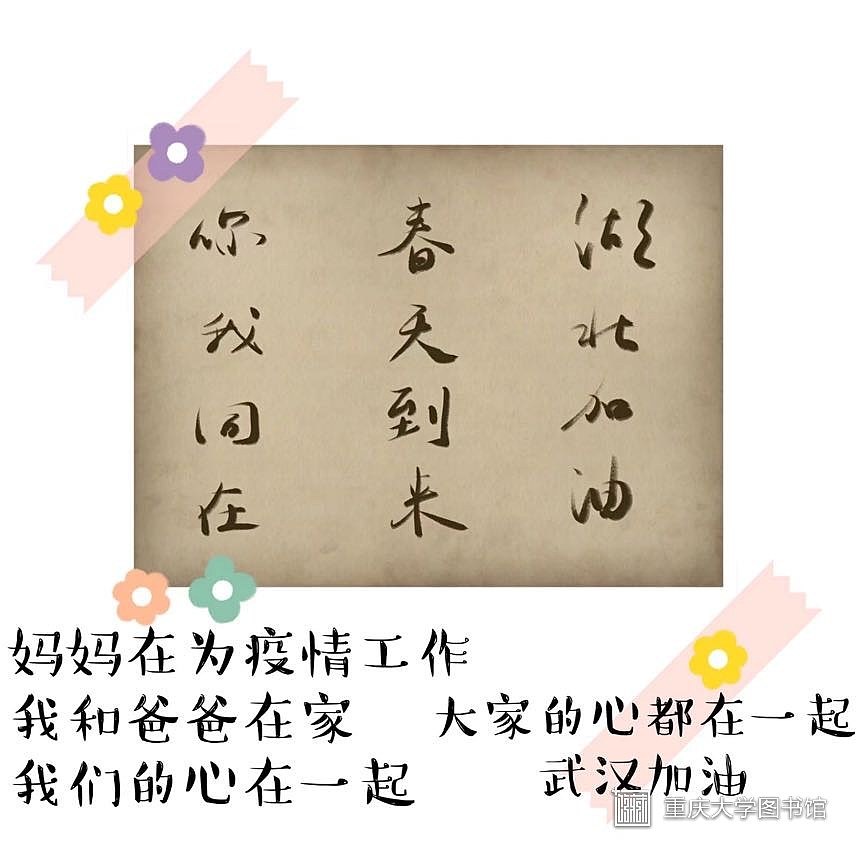 湖北加油
春天到来
你我同在
妈妈在为疫情工作
我和爸爸在家
我们的心在一起
大家的心都在一起
武汉加油
重庆大学图书馆